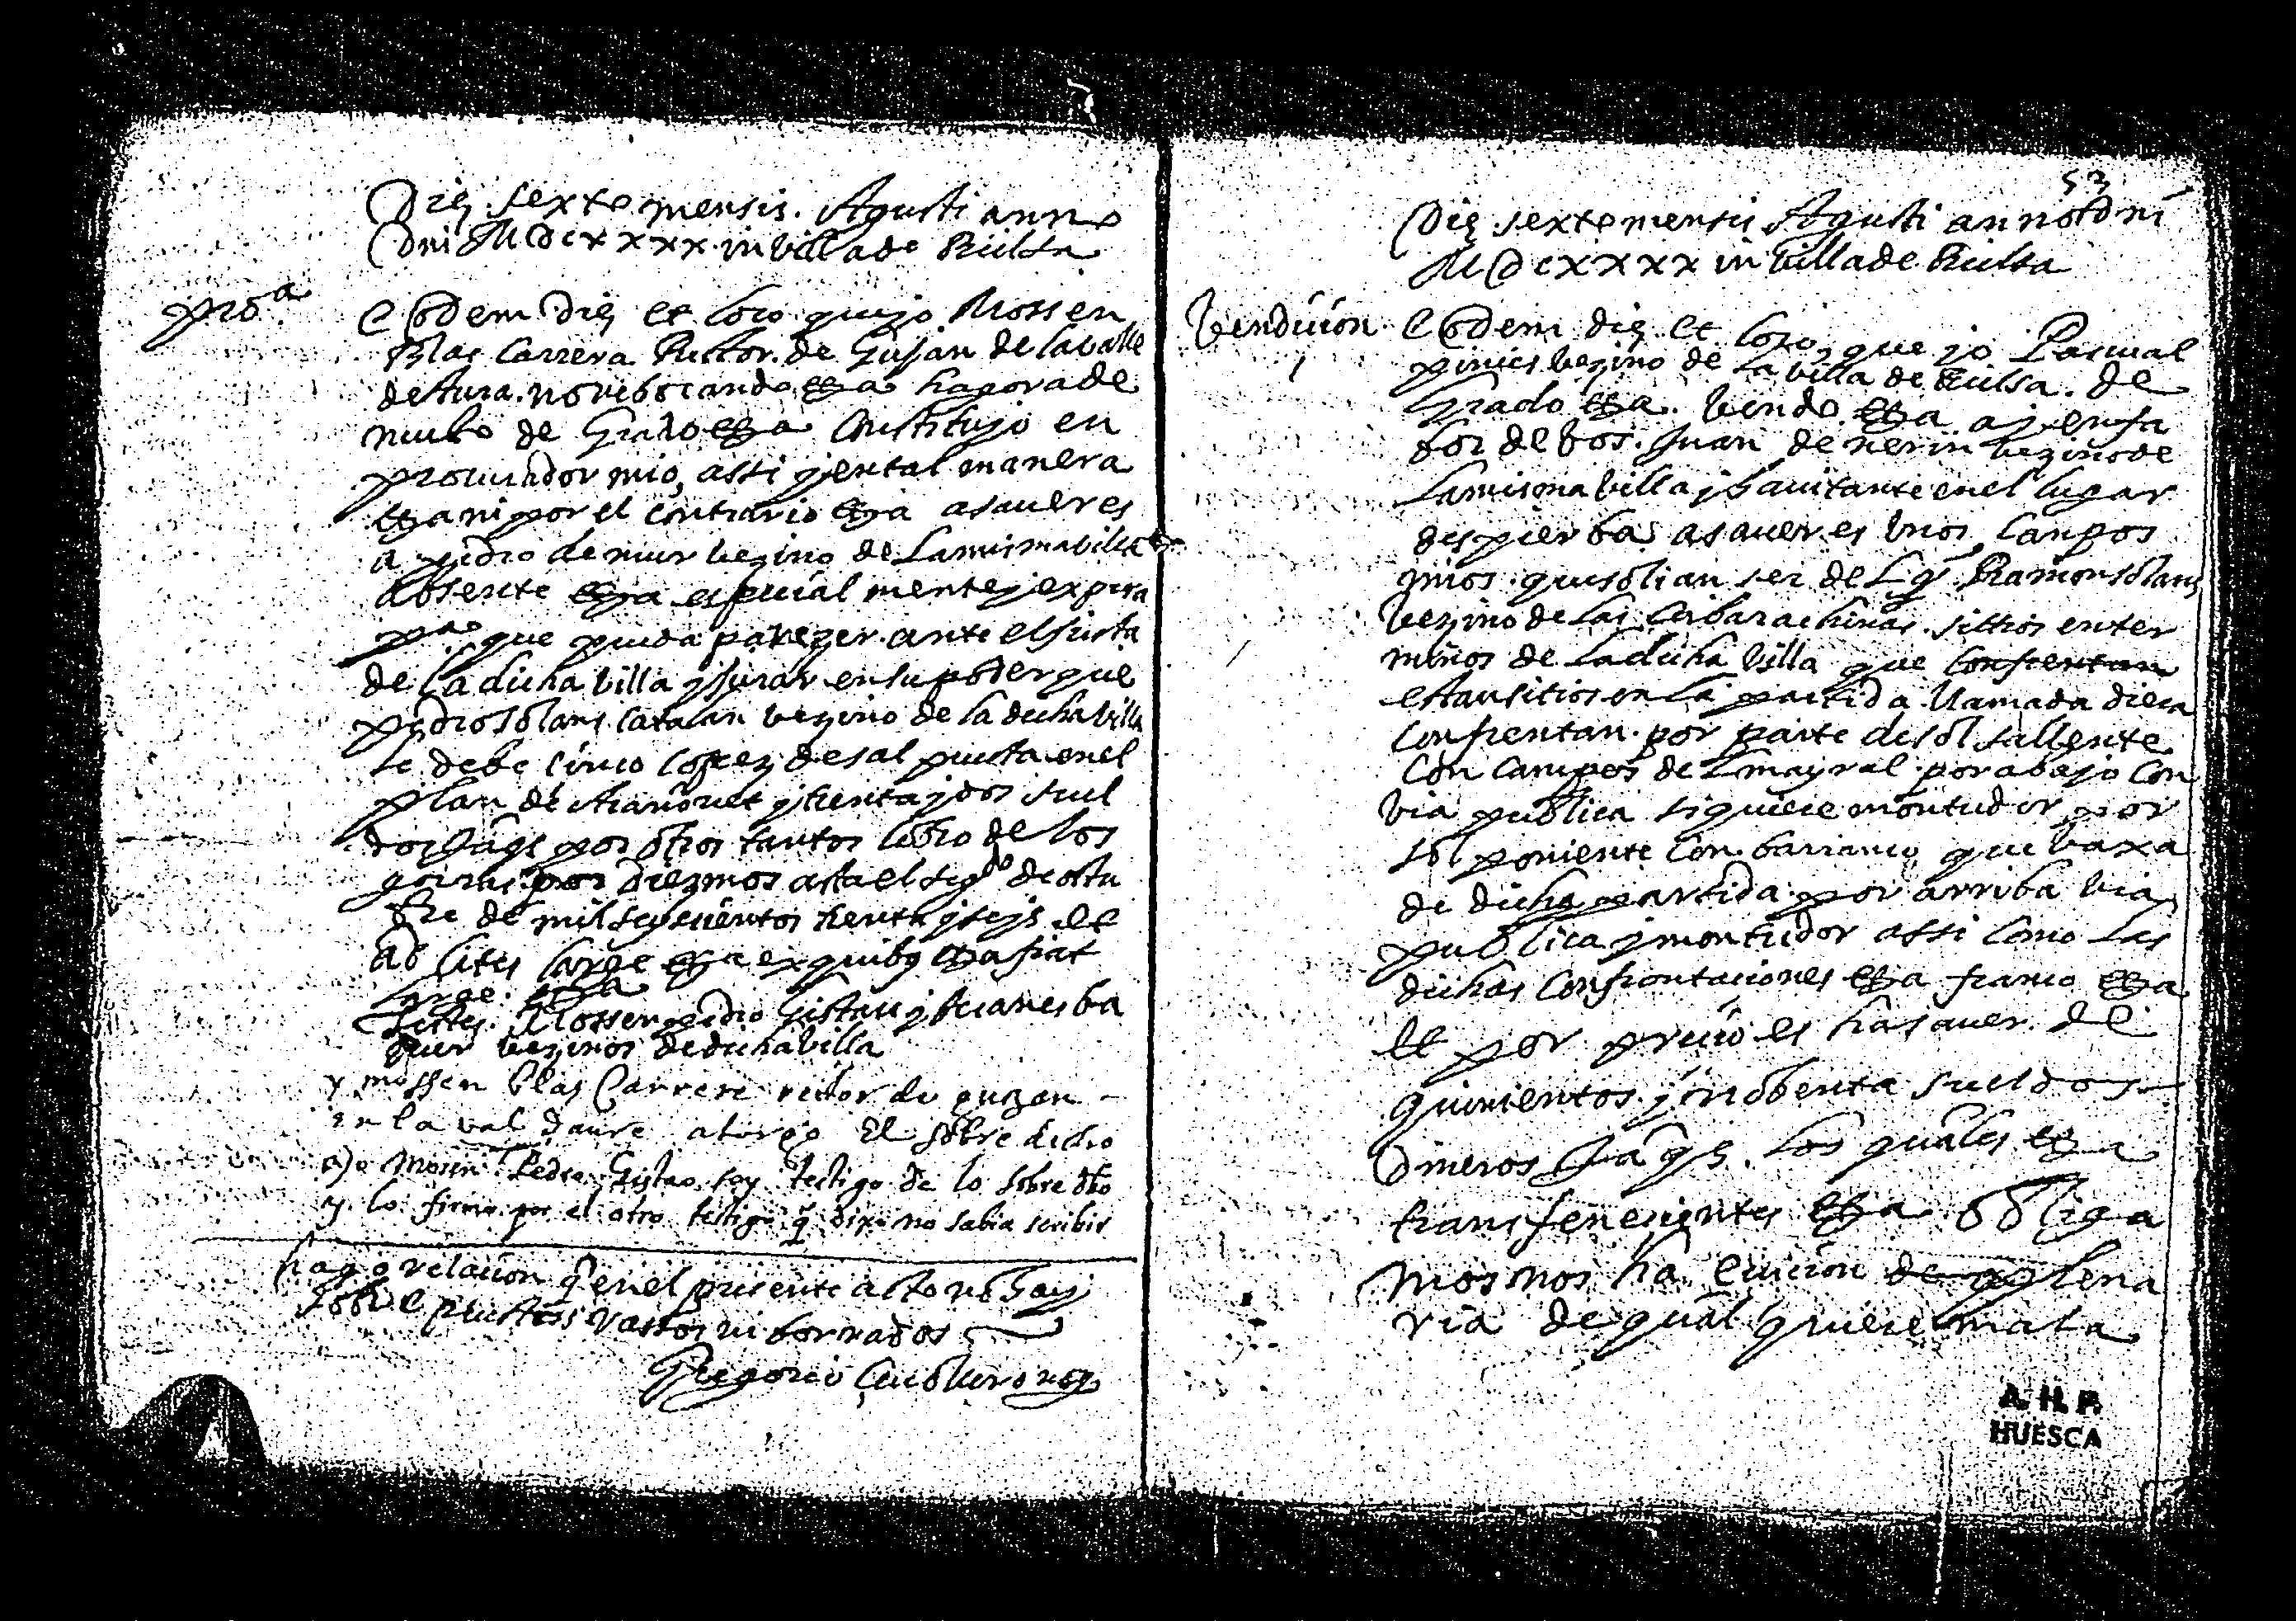 Die sexto mensis Agusti anno
Dni MDcxxxx in villa de Bielsa
pro.ª
Eodem die et loco que jo Mossen
Blas Carrera Rector de Gujan de la balle
de Aura. no rebocando etta hagora de
nuebo de Grado etta Constitujo en
procurador mio, assi y en tal manera
etta ni por el contrario etta asauer es
a pedro de mur bezino de la misma billa
absente etta especial mente y expresa
pª que pueda parezer ante el Justa
de la dicha billa y Jurar en su poder que
pedro solans Catalan bezino de la dicha billa
le debe cinco de sal puesta en el
plan de y trenta y dos suel
dos Jaqs por otros tantos cobro de los
por diezmos asta el de octu
bre de mil seyscientos trenta y seys et
ad lites large etta ex quibus etta fiat
large etta
Testes Mossen pedro Gistau y Juan es ba
quer bezinos de dicha billa
y mossen blas Carrere retor de guzan
en la val daure atorgo El sobre dicho
yo Mosen Pedro Gistao soy testigo de lo sobre dho
y lo firmo por el otro testigo q̃ dixo no sabia scribir
hago relacion q̃ en el presente acto no hay
sobre puestos rassos ni borrados
Gregorio noty
53
Die sexto mensis Agusti anno dni
MDcxxxx in billa de Bielsa
bendicion
Eodem die et loco, que jo Pascual
pinies bezino de la villa de Bielsa. de
Grado etta. bendo etta a y en fa
bor de bos. Juan de nerin bezino de
la misma billa y hauitante en el lugar
despierba asauer es unos Canpos
mios que solian ser de Ramon solans
bezino de las sittios en ter
minos de la dicha billa que confrentan
estan sitios en la partida llamada
Confrentan por parte de sol sallente
Con Campos de mayral por abajo con
via publica siquiere montudor, por
sol poniente con barranco que baxa
de dicha partida por arriba via
publica y montudor assi como las
dichas confrontaciones etta franco etta
et por precio es ha sauer de
quinientos y nobenta sueldos
dineros Jaqs. los quales etta
transferecientes etta obliga
mos nos ha euicion de plena
ria de qual quiere mala
A. H. P.
HUESCA